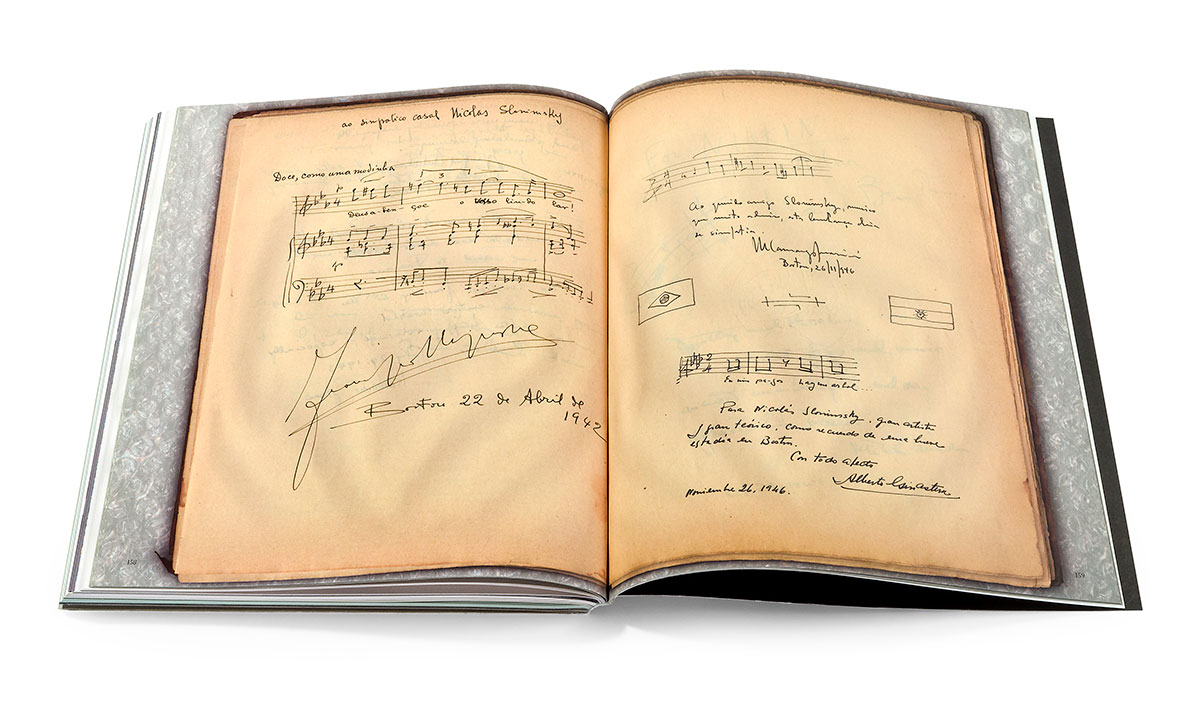 ao simpatico casal Nicolas Slonimsky
Doce, como uma modinha
Deus a-ben-çoe o vosso lin-do lar!
Boston 22 de Abril de
1942
158
Ao querido amigo Slonimsky, musico
que muito admiro, esta lembrança
de simpatia.
M Camargo Guarnieri
Boston, 26/11/946
2
4
En mis pa-gos hay un arbol...
Para Nicolás Slonimsky, gran artista
y gran teórico, como recuerdo de una breve
estadía en Boston.
Con todo afecto
Alberto Ginastera
Noviembre 26, 1946.
159